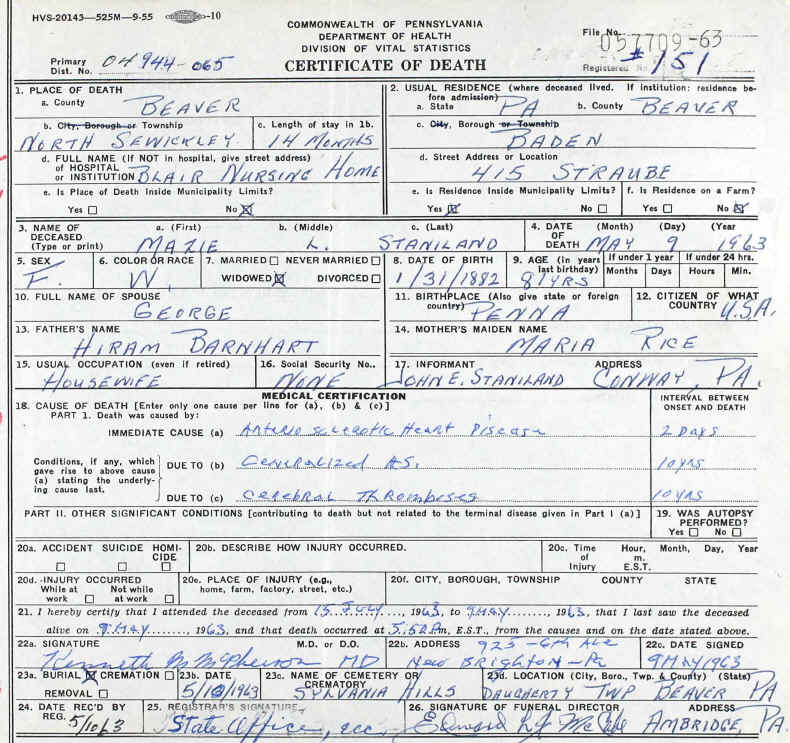 HVS-20143—525M—9-55 —10
COMMONWEALTH OF PENNSYLVANIA
DEPARTMENT OF HEALTH
DIVISION OF VITAL STATISTICS
CERTIFICATE OF DEATH
File No.
057709-63
Primary
Dist. No. 04944-065
Registered No. #151
1. PLACE OF DEATH
a. County BEAVER
b. City, Borough or Township
NORTH SEWICKLEY
c. Length of stay in 1b.
14 MONTHS
d. FULL NAME (If NOT in hospital, give street address)
of HOSPITAL
or INSTITUTION BLAIR NURSING HOME
e. Is Place of Death Inside Municipality Limits?
Yes No
2. USUAL RESIDENCE (where deceased lived. If institution: residence be-
fore admission)
a. State PA b. County BEAVER
c. City, Borough or Township
BADEN
d. Street Address or Location
415 STRAUBE
e. Is Residence Inside Municipality Limits?
Yes No
f. Is Residence on a Farm?
Yes No
3. NAME OF
DECEASED
(Type or print)
a. (First) b. (Middle) c. (Last)
MAZIE L. STANILAND
4. DATE
OF
DEATH
(Month) (Day) (Year
MAY 9 1963
5. SEX
F.
6. COLOR OR RACE
W.
7. MARRIED NEVER MARRIED
WIDOWED DIVORCED
8. DATE OF BIRTH
1/31/1882
9. AGE (in years
last birthday)
81YRS
If under 1 year
Months Days
If under 24 hrs.
Hours Min.
10. FULL NAME OF SPOUSE
GEORGE
11. BIRTHPLACE (Also give state or foreign
country)
PENNA
12. CITIZEN OF WHAT
COUNTRY U.S.A.
13. FATHER'S NAME
HIRAM BARNHART
14. MOTHER'S MAIDEN NAME
MARIA RICE
15. USUAL OCCUPATION (even if retired)
HOUSEWIFE
16. Social Security No..
NONE
17. INFORMANT ADDRESS
JOHN E. STANILAND CONWAY, PA.
MEDICAL CERTIFICATION
18. CAUSE OF DEATH [Enter only one cause per line for (a), (b) & (c)]
PART 1. Death was caused by:
INTERVAL BETWEEN
ONSET AND DEATH
IMMEDIATE CAUSE (a) Arterio sclerotic Heart Disease 2 Days
Conditions, if any, which
gave rise to above cause
(a) stating the underly-
ing cause last.
DUE TO (b) Generalized A.S. 10 yrs
DUE TO (c) Cerebral Thromboses 10 yrs
PART II. OTHER SIGNIFICANT CONDITIONS [contributing to death but not related to the terminal disease given in Part I (a)]
19. WAS AUTOPSY
PERFORMED?
Yes No
20a. ACCIDENT SUICIDE HOMI-
CIDE
20b. DESCRIBE HOW INJURY OCCURRED.
20c. Time
of
Injury
Hour, Month, Day, Year
m.
E.S.T.
20d. INJURY OCCURRED
While at
work
Not while
at work
20e. PLACE OF INJURY (e.g.,
home, farm, factory, street, etc.)
20f. CITY, BOROUGH, TOWNSHIP COUNTY STATE
21. I hereby certify that I attended the deceased from 15 July, 1963, to 9 May, 1963, that I last saw the deceased
alive on 9 May, 1963, and that death occurred at 5:52 Am, E.S.T., from the causes and on the date stated above.
22a. SIGNATURE M.D. or D.O.
Kenneth M McPherson MD
22b. ADDRESS 925-6th Ave
New Brighton - Pa
22c. DATE SIGNED
9 May 1963
23a. BURIAL CREMATION
REMOVAL
23b. DATE
5/12/1963
23c. NAME OF CEMETERY OR
CREMATORY
SYLVANIA HILLS
23d. LOCATION (City, Boro., Twp. & County) (State)
DAUGHERTY TWP BEAVER PA
24. DATE REC'D BY
REG. 5/10/63
25. REGISTRAR'S SIGNATURE
State Office,
26. SIGNATURE OF FUNERAL DIRECTOR, ADDRESS
Edward AMBRIDGE, PA.